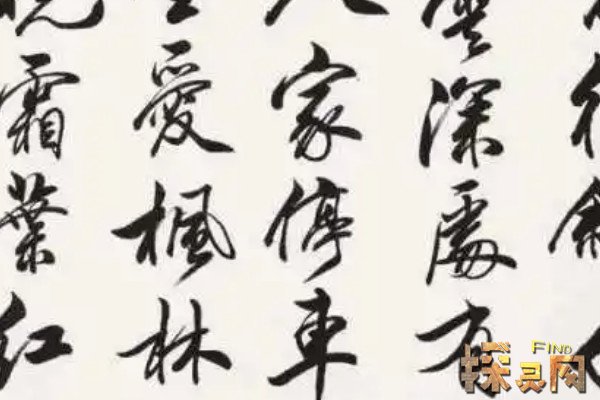 雲深處有
人家停車
愛楓林
霜葉紅
FIND
探灵网